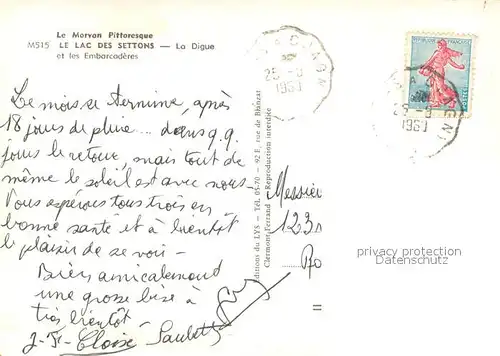 Le Morvan Pittoresque
M515 LE LAC DES SETTONS — La Digue
et les Embarcadères
25-8
1960
Le mois se termine après
18 jours de pluie... dans q.q.
jours le retour, mais tout de
même le soleil est avec nous-
Nous espérons tous trois en
bonne santé et à bientôt
le plaisir de se voir -
Bien amicalement
une grosse bise à
très bientôt
J-F- Eloïse Paulette
Editions du LYS - Tél. 05-70 - 92 F, rue de Blanzat
Clermont-Ferrand - Reproduction interdite
Messier
privacy protection
Datenschutz